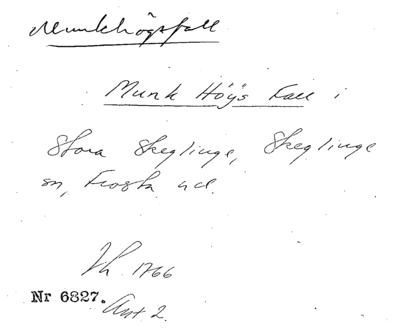 Munkhögsfall
Munk Höÿs Fall i
Stora Skeglinge, Skeglinge
sn, Frosta hd.
Lh 1766
Nr 6827.
Akt 2